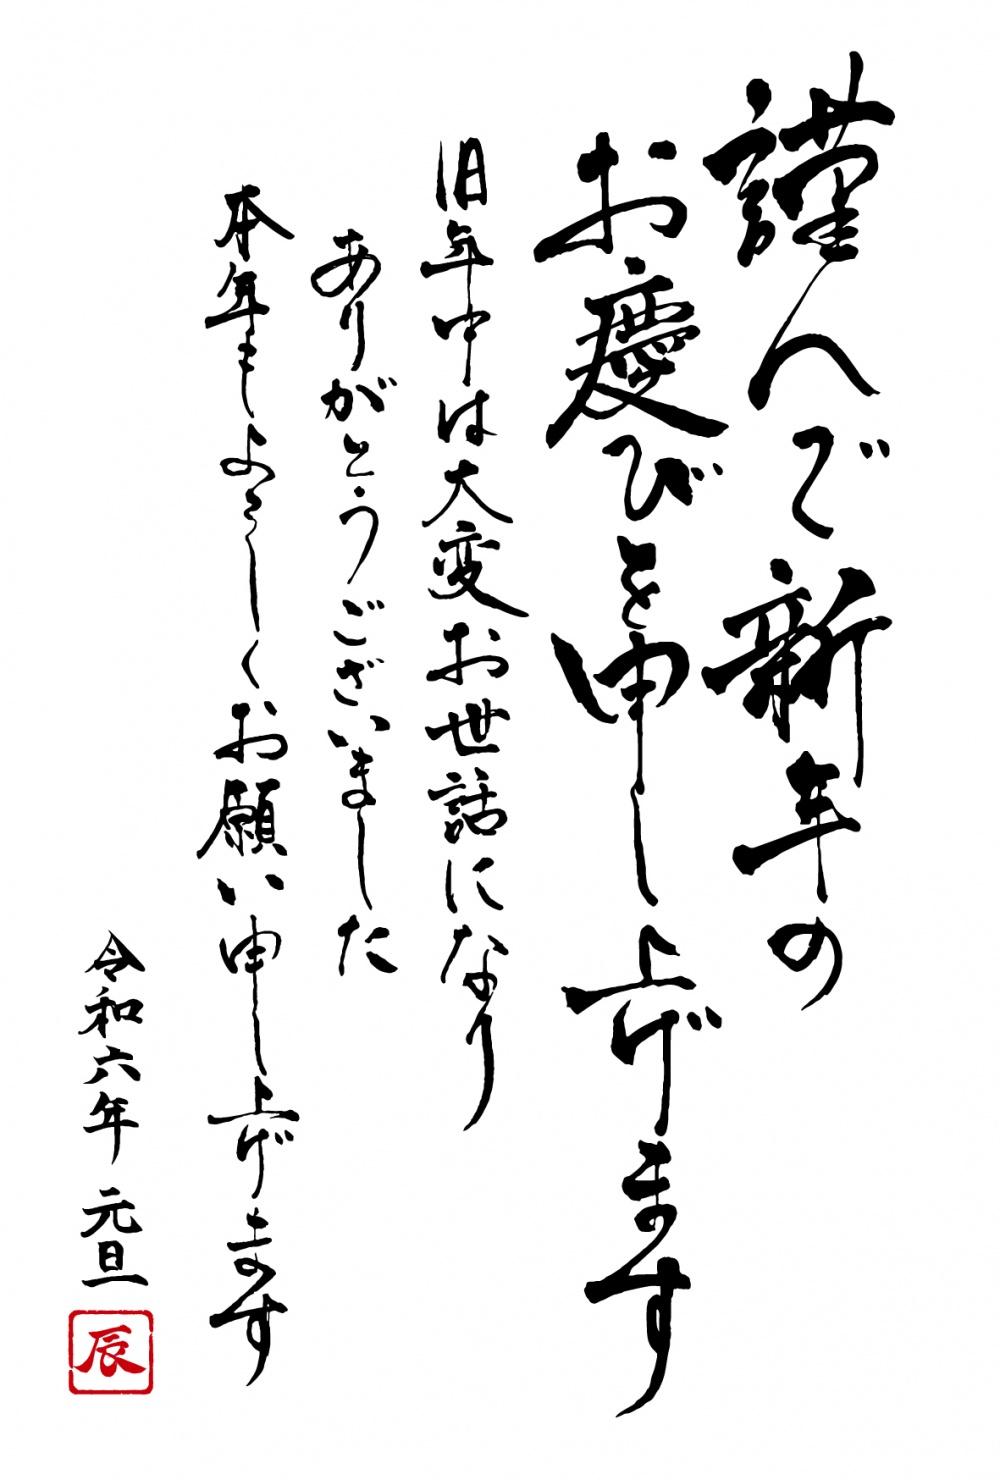 謹んで新年の
お慶びを申し上げます
旧年中は大変お世話になり
ありがとうございました
本年もよろしくお願い申し上げます
令和六年 元旦
辰